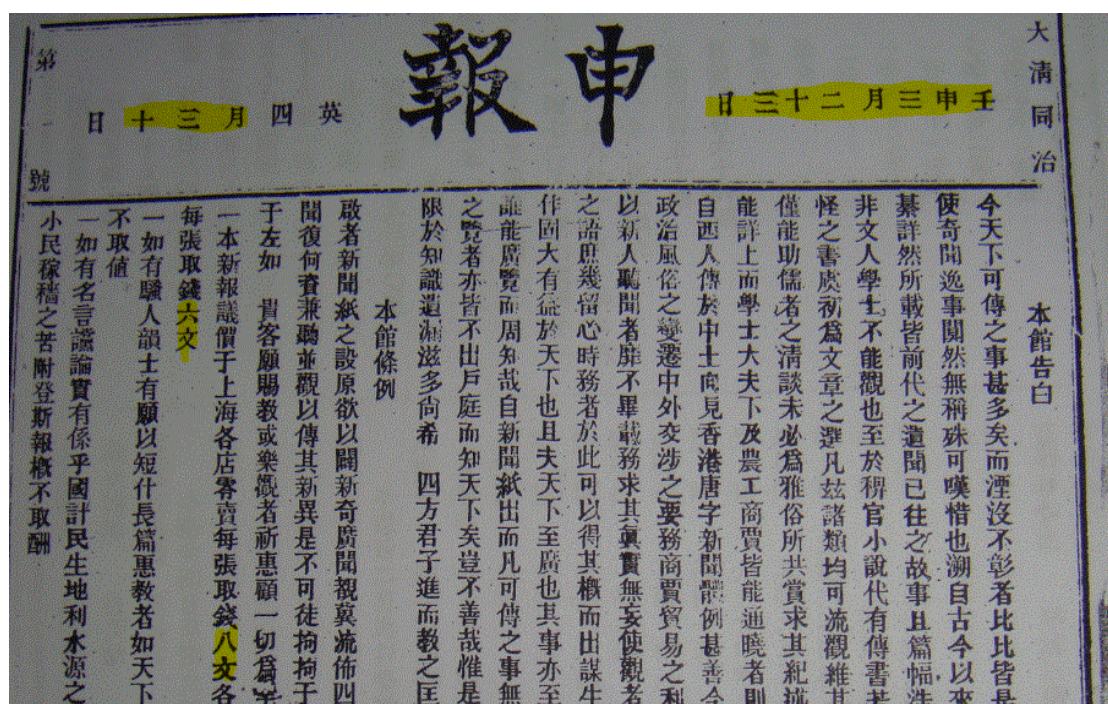 大清同治
壬申三月二十三日
申報
英四月三十日
第一號
本館告白
今天下可傳之事甚多矣而湮沒不彰者比比皆是
使奇聞逸事闃然無稱殊可嘆惜也溯自古今以來
綦詳然所載皆前代之遺聞已往之故事且篇幅浩
非文人學士不能觀也至於稗官小說代有傳書若
怪之書虞初爲文章之選凡茲諸類均可流觀維其
僅能助儒者之清談未必爲雅俗所共賞求其紀述
能詳上而學士大夫下及農工商賈皆能通曉者則
自西人傳於中土向見香港唐字新聞體例甚善今
政治風俗之變遷中外交涉之要務商賈貿易之利
以新人聽聞者靡不畢載務求其眞實無妄使觀者
之語庶幾留心時務者於此可以得其概而出謀生
作固大有益於天下也且夫天下至廣也其事亦至
誰能廣覽而周知哉自新聞紙出而凡可傳之事無
之覽者亦皆不出戶庭而知天下矣豈不善哉惟是
限於知識遺漏滋多尚希 四方君子進而教之匡
本館條例
啟者新聞紙之設原欲以闢新奇廣聞覩冀流佈四
聞復何資兼聽並觀以傳其新異是不可徒拘拘于
于左如 貴客願賜教或樂觀者祈惠顧一切爲
一本新報議價于上海各店零賣每張取錢八文各
每張取錢六文
一如有騷人韻士有願以短什長篇惠教者如天下
不取値
一如有名言讜論實有係乎國計民生地利水源之
小民稼穡之苦附登斯報概不取酬